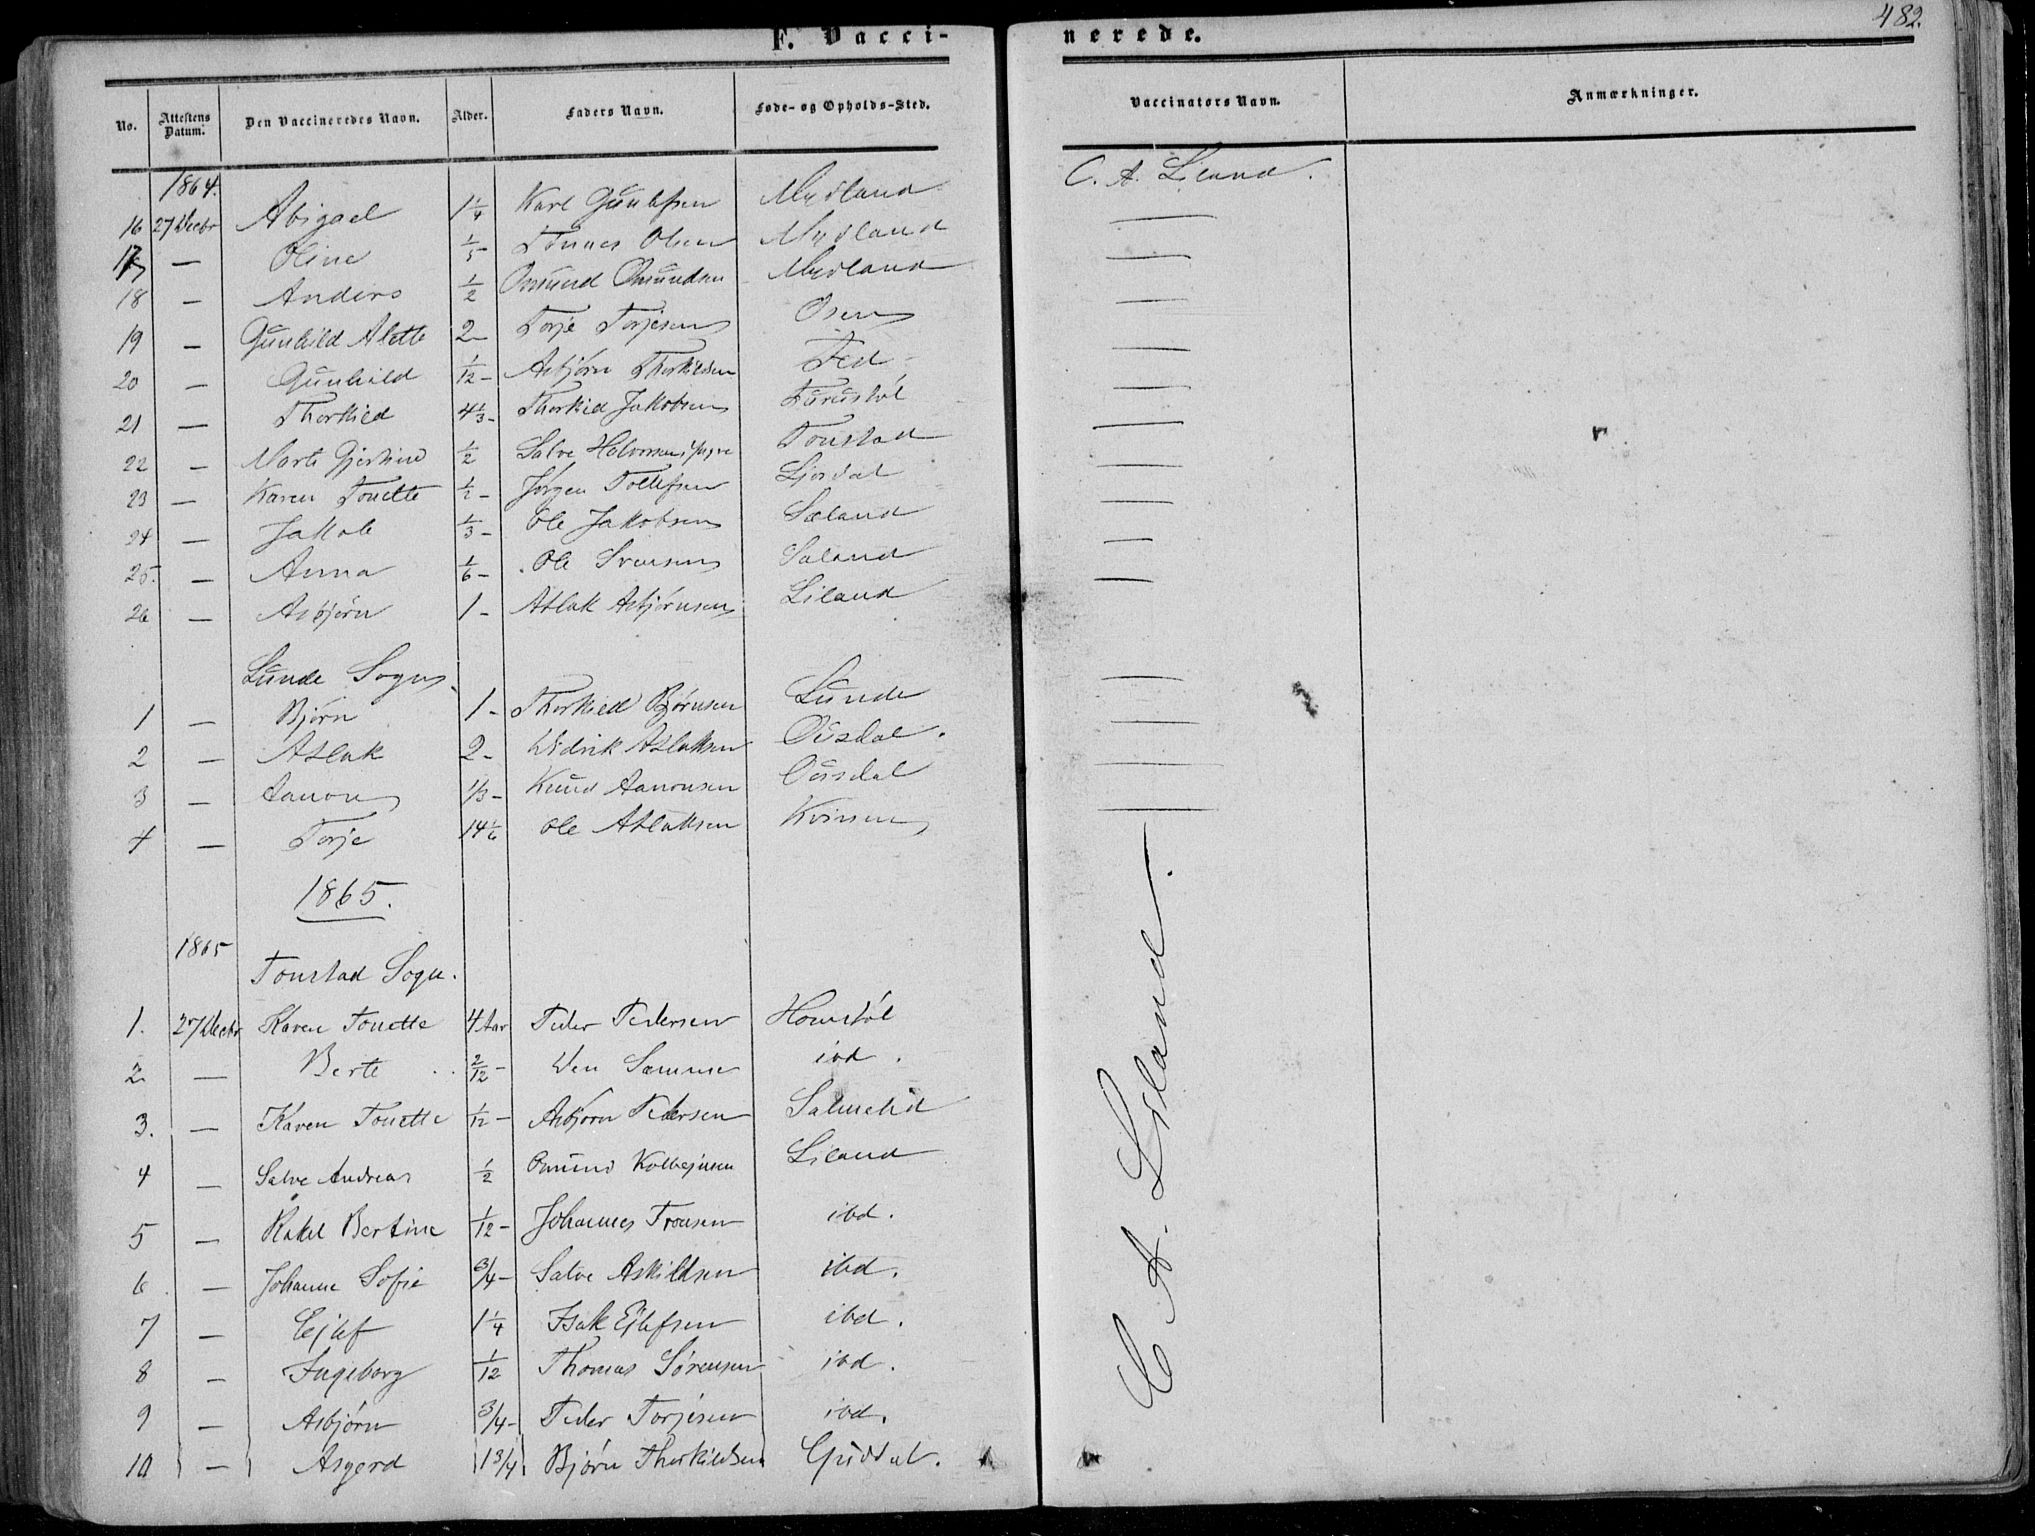 F. Vaccinerede.
482.
No. Attestens Datum. Den Vaccineredes Navn. Alder. Faders Navn. Føde- og Opholds-Sted. Vaccinators Navn. Anmærkninger.
1864.
16 27 Decbr Abigael 1 1/4 Karl Gunlefsen Mydland C. A. Liland.
17 — Oline 1/5 Tønnes Olsen Mydland —
18 — Anders 1/2 Omund Omundsen Mydland —
19 — Gunhild Alette 2 — Torje Torjesen Osen —
20 — Gunhild 1/12 — Asbjørn Thorkildsen Fed —
21 — Thorkild 4 1/3 — Thorkild Jakobsen Furustøl —
22 — Marte Gjertine 1/2 Salve Halvorsen Tonstad —
23 — Karen Tonette 1/2 — Jørgen Tollefsen Ljosdal —
24 — Jakob 1/3 — Ole Jakobsen Sæland —
25. — Anna 1/6 — Ole Svensen Sæland —
26 — Asbjørn 1 — Atlak Asbjørnsen Liland —
Lunde Sogn.
1 — Bjørn 1 — Thorkild Bjørnsen Lunde —
2 — Atlak 2 — Didrik Atlaksen Ousdal. —
3 — Aanon 1/3 — Knud Aanonsen Ousdal —
4 — Torje 14 1/6 Ole Atlaksen Kvinen —
1865.
1865
Tonstad Sogn.
C. A. Liland.
1. 27 Decbr Karen Tonette 4 Aar Peder Pedersen Homstøl
2. — Berte 2/12 — Den Samme ibd.
3. — Karen Tonette 1/12 — Asbjørn Pedersen Salmelid
4 — Salve Andreas 1/2 Omund Kolbejnsen Liland
5 — Rakel Bertine 1/12 — Johannes Tronsen ibd.
6 — Johanne Sofie 3/4 — Salve Askildsen ibd.
7 — Ejlef 1 1/4 Isak Ejlefsen ibd.
8 — Ingeborg 1/12 Thomas Sørensen ibd.
9 — Asbjørn 3/4 — Peder Torjesen ibd.
10 — Asgerd 1 3/4 Bjørn Thorkildsen Guddal.